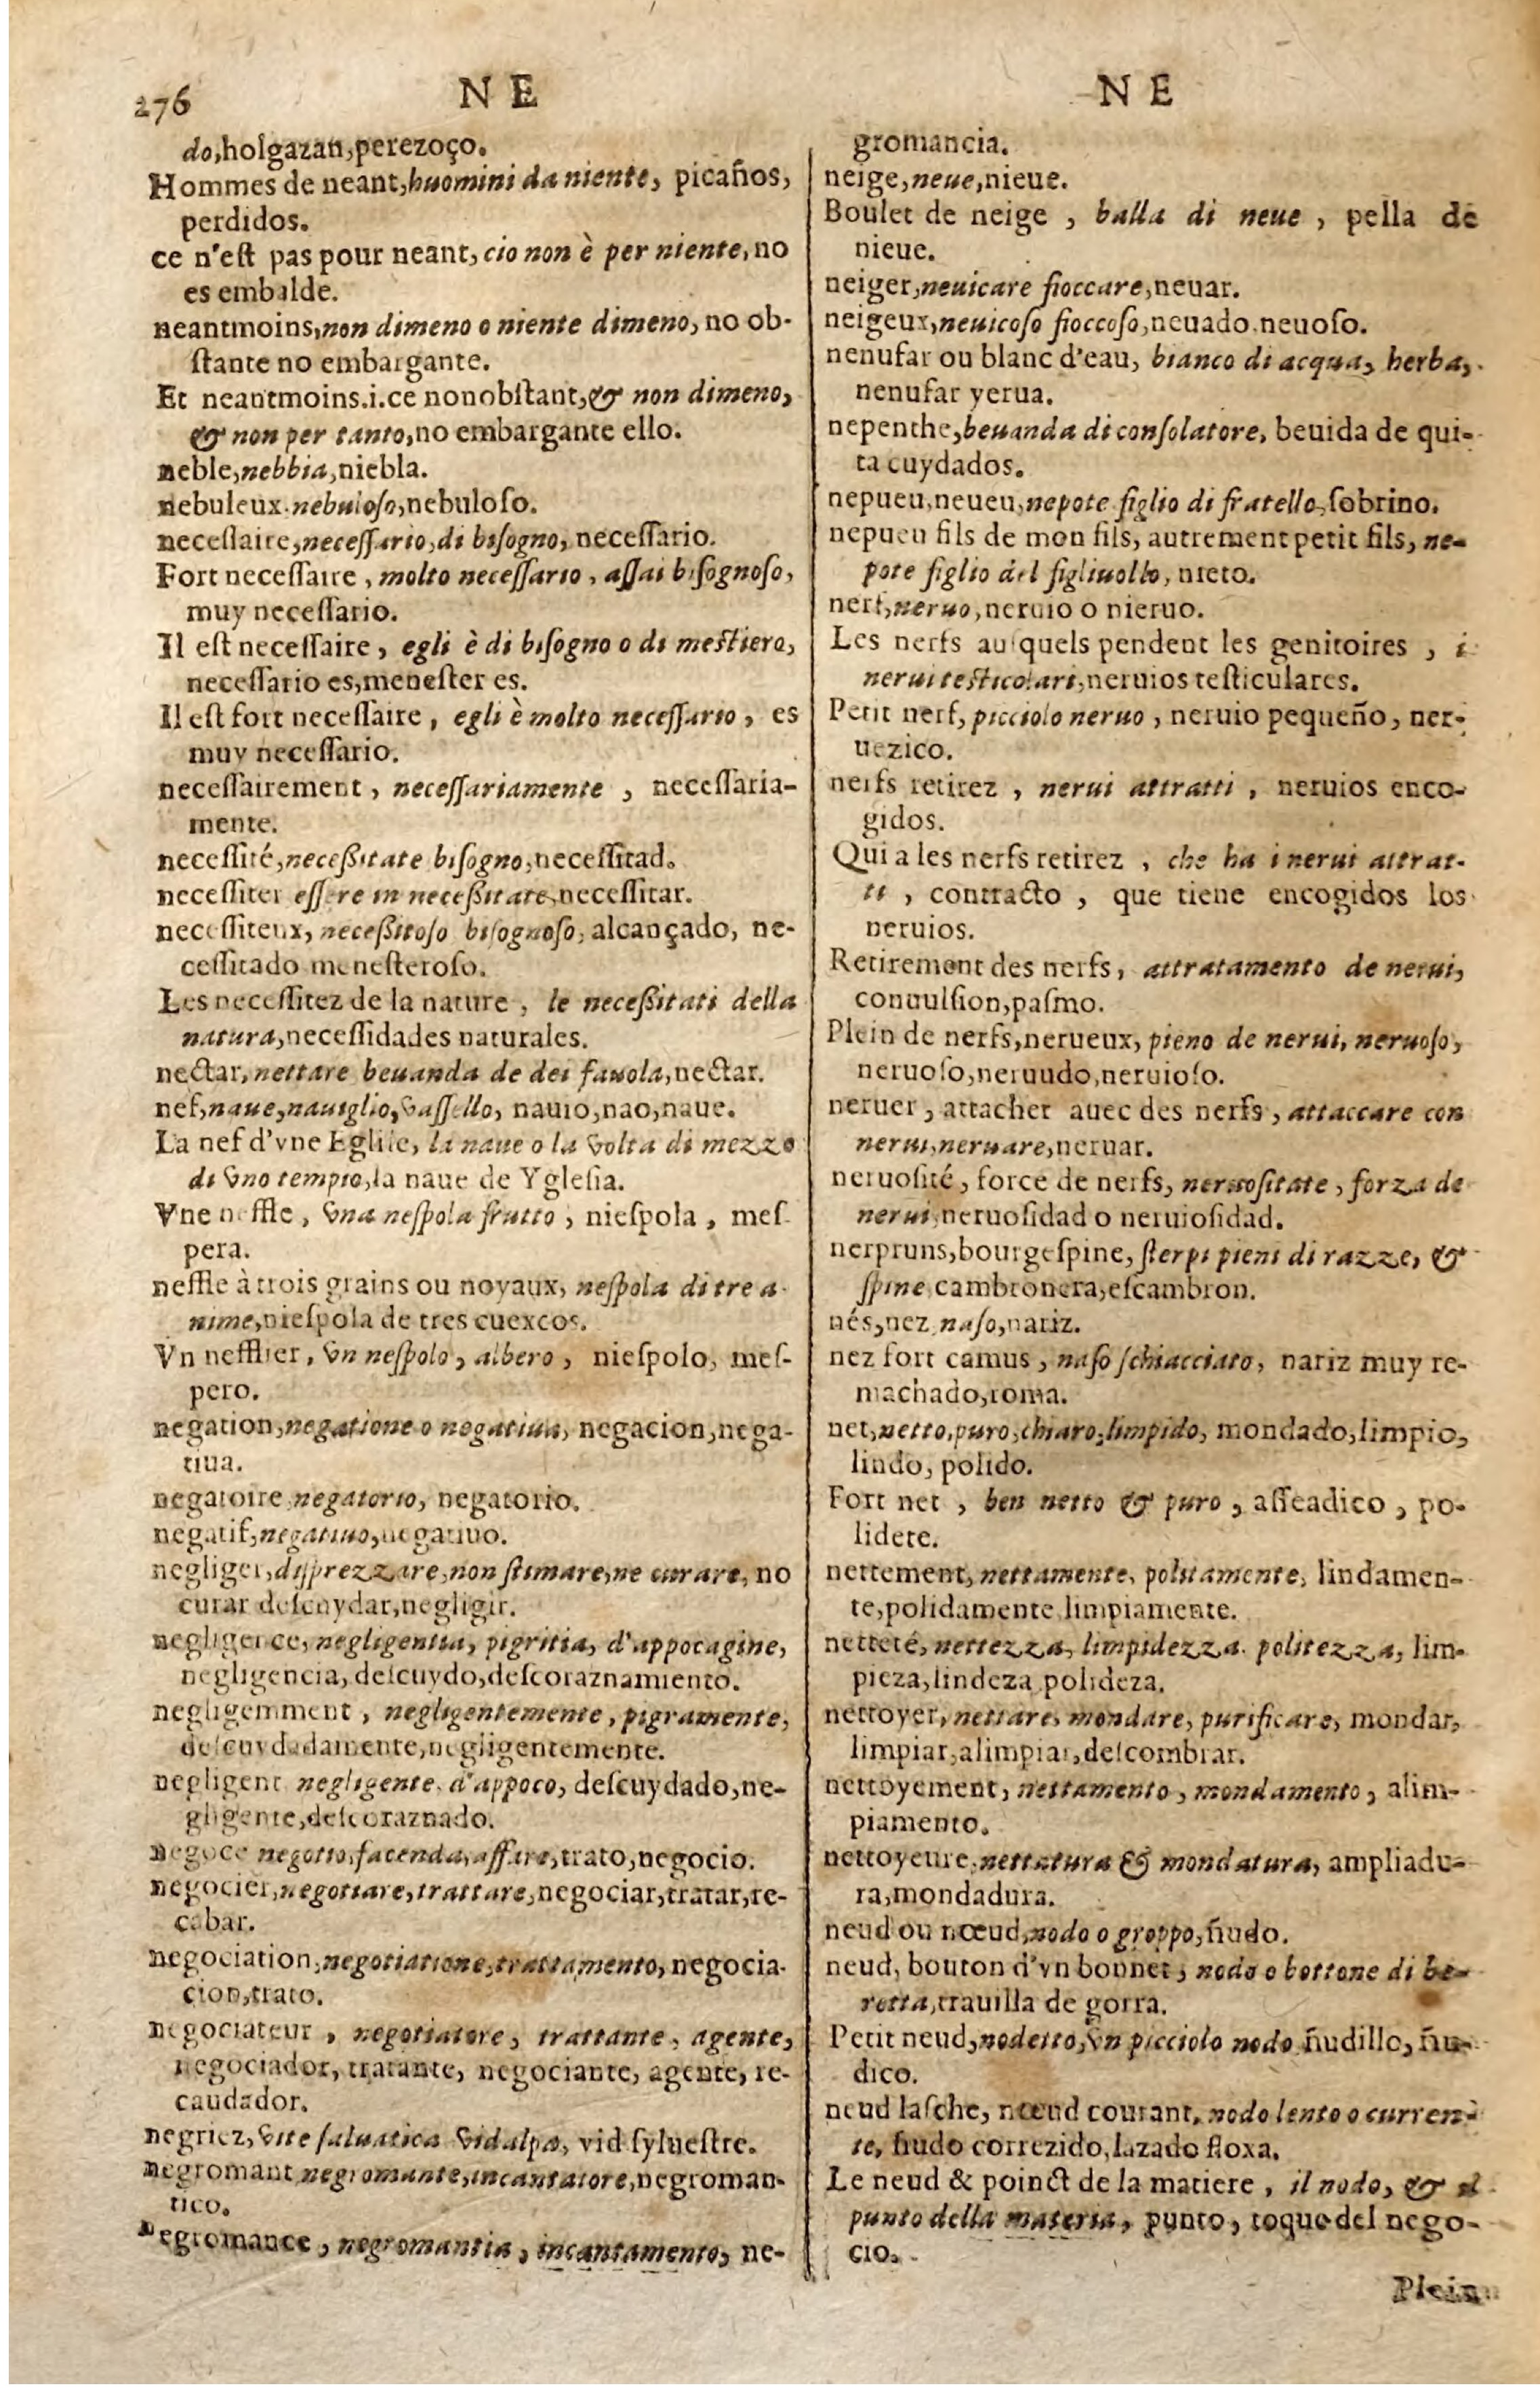 276
N E
N E
do,holgazan,perezoço.
Hommes de neant,huomini da niente, picaños,
perdidos.
ce n'eſt pas pour neant, cio non è per niente, no
es embalde.
neantmoins,non dimeno o niente dimeno, no ob-
ſtante no embargante.
Et neantmoins.i.ce nonobſtant,& non dimeno,
& non per tanto,no embargante ello.
neble,nebbia,niebla.
nebuleux.nebuloſo,nebuloſo.
neceſſaire,neceſſario,di biſogno, neceſſario.
Fort neceſſaire, molto neceſſario, aſſai biſognoſo,
muy neceſſario.
Il eſt neceſſaire, egli è di biſogno o di meſtiero,
neceſſario es,meneſter es.
Il eſt fort neceſſaire, egli è molto neceſſario, es
muy neceſſario.
neceſſairement, neceſſariamente, neceſſaria-
mente.
neceſſité,neceßitate biſogno,neceſſitad.
neceſſiter eſſere in neceßitate,neceſſitar.
neceſſiteux, neceßitoſo biſognoſo, alcançado, ne-
ceſſitado meneſteroſo.
Les neceſſitez de la nature, le neceßitati della
natura,neceſſidades naturales.
nectar, nettare beuanda de dei fauola,nectar.
nef,naue,nauiglio,vaſſello, nauio,nao,naue.
La nef d'vne Egliſe, la naue o la volta di mezzo
di vno tempio,la naue de Ygleſia.
Vne neffle, vna neſpola frutto, nieſpola, meſ-
pera.
neffle à trois grains ou noyaux, neſpola di tre a-
nime,nieſpola de tres cuexcos.
Vn nefflier, vn neſpolo, albero, nieſpolo, meſ-
pero.
negation,negatione o negatiua, negacion,nega-
tiua.
negatoire negatorio, negatorio.
negatif,negatiuo,negatiuo.
negliger,diſprezzare,non ſtimare,ne curare, no
curar deſcuydar,negligir.
negligence, negligentia, pigritia, d'appocagine,
negligencia, deſcuydo,deſcoraznamiento.
negligemment, negligentemente, pigramente,
deſcuydadamente,negligentemente.
negligent negligente. d'appoco, deſcuydado,ne-
gligente,deſcoraznado.
negoce negotio,facenda,affare,trato,negocio.
negocier,negotiare,trattare,negociar,tratar,re-
cabar.
negociation,negotiatione,trattamento, negocia-
cion,trato.
negociateur, negotiatore, trattante, agente,
negociador, tratante, negociante, agente, re-
caudador.
negriez, vite ſaluatica vidalpa, vid ſylueſtre.
negromant negromante,incantatore,negroman-
tico.
negromance, negromantia, incantamento, ne-
gromancia.
neige,neue,nieue.
Boulet de neige, balla di neue, pella de
nieue.
neiger,neuicare fioccare,neuar.
neigeux,neuicoſo fioccoſo,neuado.neuoſo.
nenufar ou blanc d'eau, bianco di acqua, herba,
nenufar yerua.
nepenthe,beuanda di conſolatore, beuida de qui-
ta cuydados.
nepueu,neueu,nepote figlio di fratello,ſobrino.
nepueu fils de mon fils, autrement petit fils, ne-
pote figlio del figliuollo, nieto.
nerf,neruo,neruio o nieruo.
Les nerfs auſquels pendent les genitoires, i
nerui teſticolari,neruios teſticulares.
Petit nerf, picciolo neruo, neruio pequeño, ner-
uezico.
nerfs retirez, nerui attratti, neruios enco-
gidos.
Qui a les nerfs retirez, che ha i nerui attrat-
ti, contracto, que tiene encogidos los
neruios.
Retirement des nerfs, attratamento de nerui,
conuulſion,paſmo.
Plein de nerfs,nerueux, pieno de nerui, neruoſo,
neruoſo,neruudo,neruioſo.
neruer, attacher auec des nerfs, attaccare con
nerui,neruare,neruar.
neruoſité, force de nerfs, neruoſitate, forza de
nerui,neruoſidad o neruioſidad.
nerpruns,bourgeſpine, ſterpi pieni di razze, &
ſpine,cambronera,eſcambron.
nés,nez naſo,nariz.
nez fort camus, naſo ſchiacciato, nariz muy re-
machado,roma.
net,netto,puro,chiaro,limpido, mondado,limpio,
lindo, polido.
Fort net, ben netto & puro, aſſeadico, po-
lidete.
nettement, nettamente, politamente, lindamen-
te,polidamente limpiamente.
netteté, nettezza, limpidezza. politezza, lim-
pieza,lindeza polideza.
nettoyer, nettare, mondare, purificare, mondar,
limpiar,alimpiar,deſcombrar.
nettoyement, nettamento, mondamento, alim-
piamento.
nettoyeure,nettatura & mondatura, ampliadu-
ra,mondadura.
neud ou nœud,nodo o groppo,ñudo.
neud, bouton d'vn bonnet, nodo o bottone di be-
retta,trauilla de gorra.
Petit neud,nodetto,vn picciolo nodo ñudillo, ñu-
dico.
neud laſche, nœud courant, nodo lento o curren-
te, ñudo correzido,lazado floxa.
Le neud & poinct de la matiere, il nodo, & il
punto della materia, punto, toque del nego-
cio.
Plein